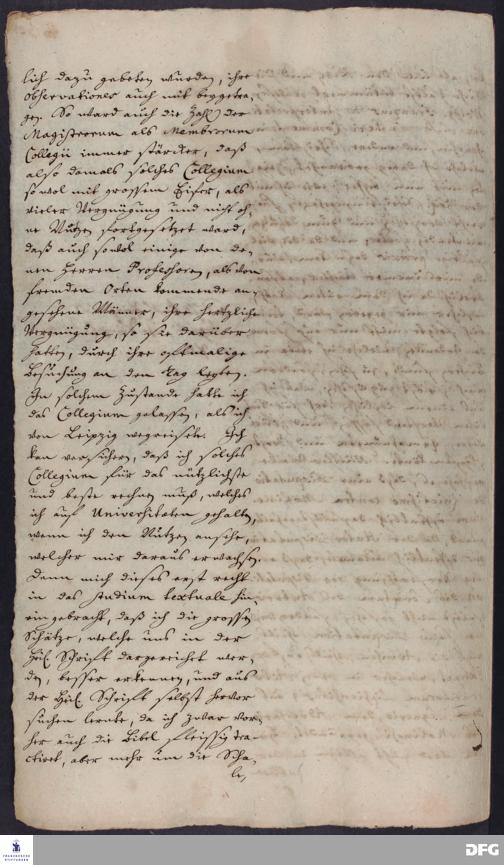 lich dazu gebeten wurden, ihre
observationes auch mit beygetra,
gen. So ward auch die Zahl der
Magistrorum als Membrorum
Collegii immer stärcker, daß
also damals solches Collegium
sowol mit grossem Eifer, als
vieler Vergnügung und nicht oh,
ne Nutzen fortgesetzet ward,
daß auch sowol einige von de,
nen Herren Professoren, als von
fremden Orten kommende an,
gesehene Männer, ihre hertzliche
Vergnügung, so sie darüber
hatten, durch ihre oftmalige
Besuchung an den Tag legten.
In solchem Zustande hatte ich
das Collegium gelassen, als ich
von Leipzig wegreisete. Ich
kan versichern, daß ich solches
Collegium für das nützlichste
und beste rechnen muß, welches
ich auf Universitäten gehalten,
wenn ich den Nutzen ansehe,
welcher mir daraus erwachsen.
Denn mich dieses erst recht
in das studium textuale hin,
ein gebracht, daß ich die grossen
Schätze, welche uns in der
Heil. Schrift dargereichet wer,
den, besser erkennen, und aus
der Heil. Schrift selbst hervor
suchen lernte, da ich zwar vor,
her auch die Bibel fleissig tra,
ctiret, aber mehr um die Scha,
le,
FRANCKESCHE
STIFTUNGEN
DFG